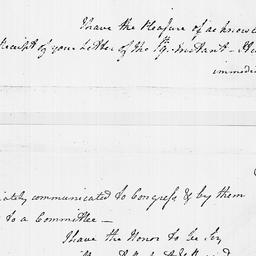 I have the Pleasure of acknowl
Receipt of your Letter of the
immedi
iately communicated to Congress & by them
to a Committee —
I have the Honor to be Sir